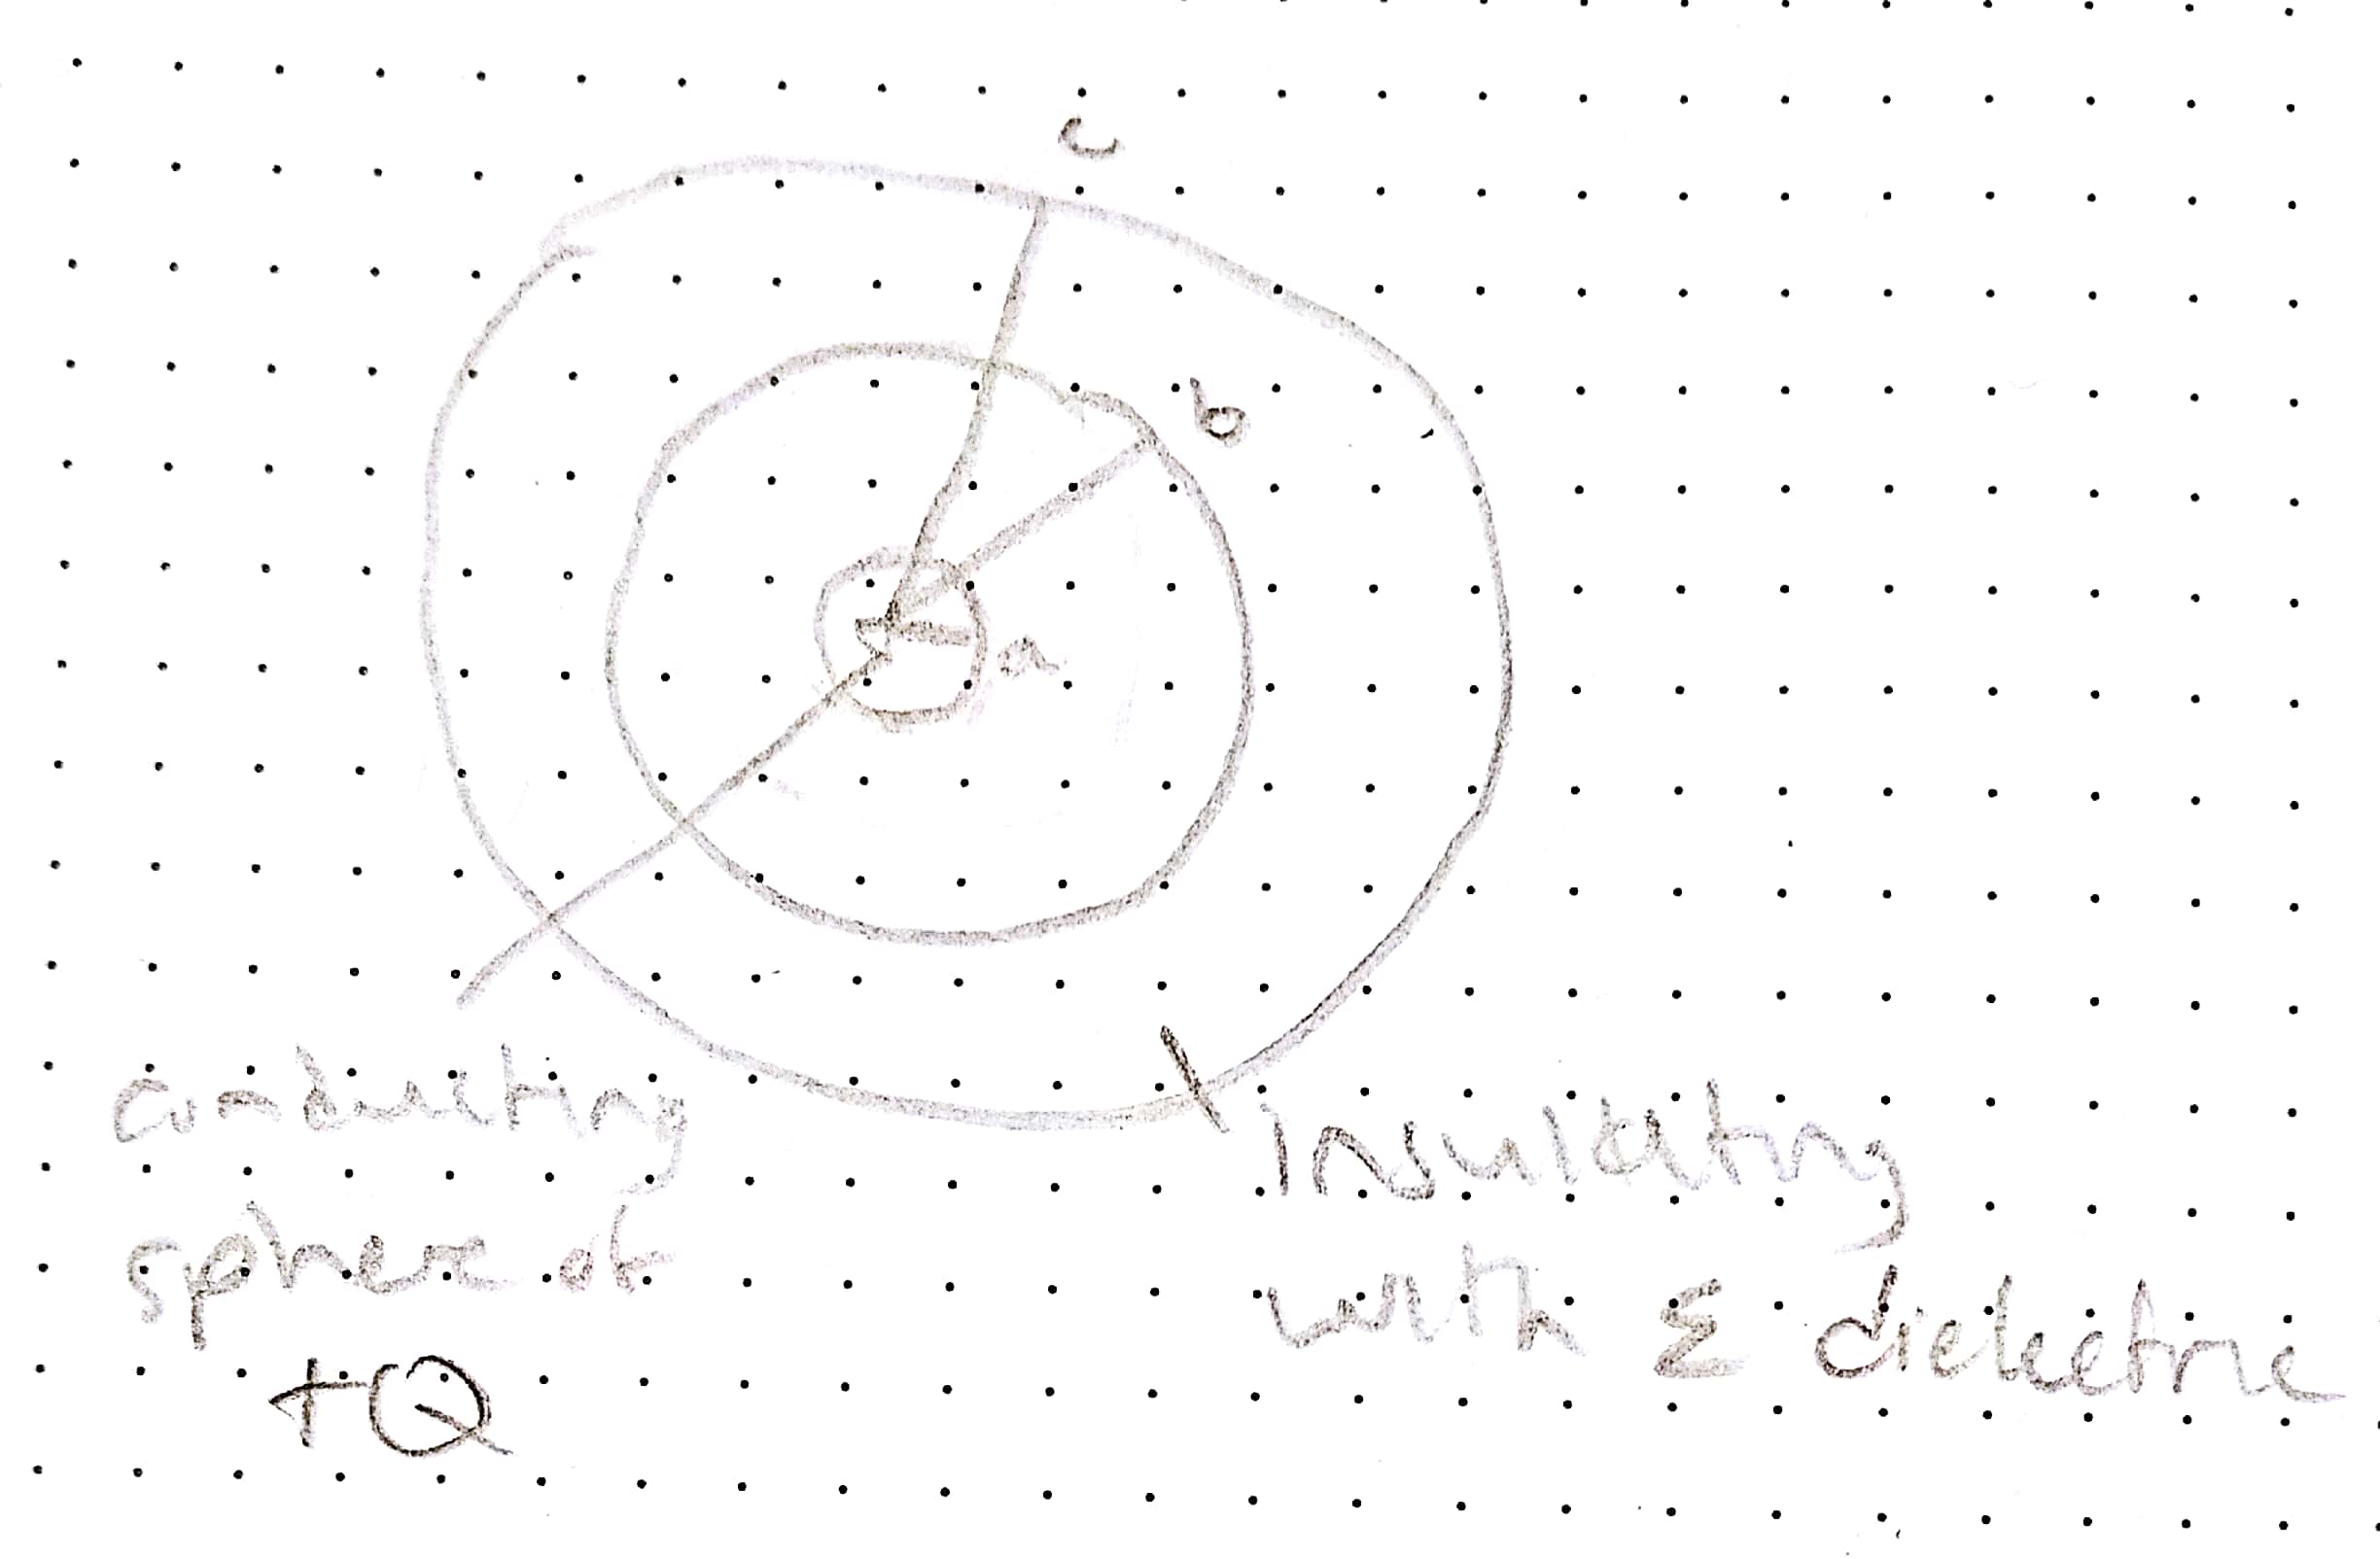 c
b
a
conducting
sphere of
+Q
insulating
with ε dielectric